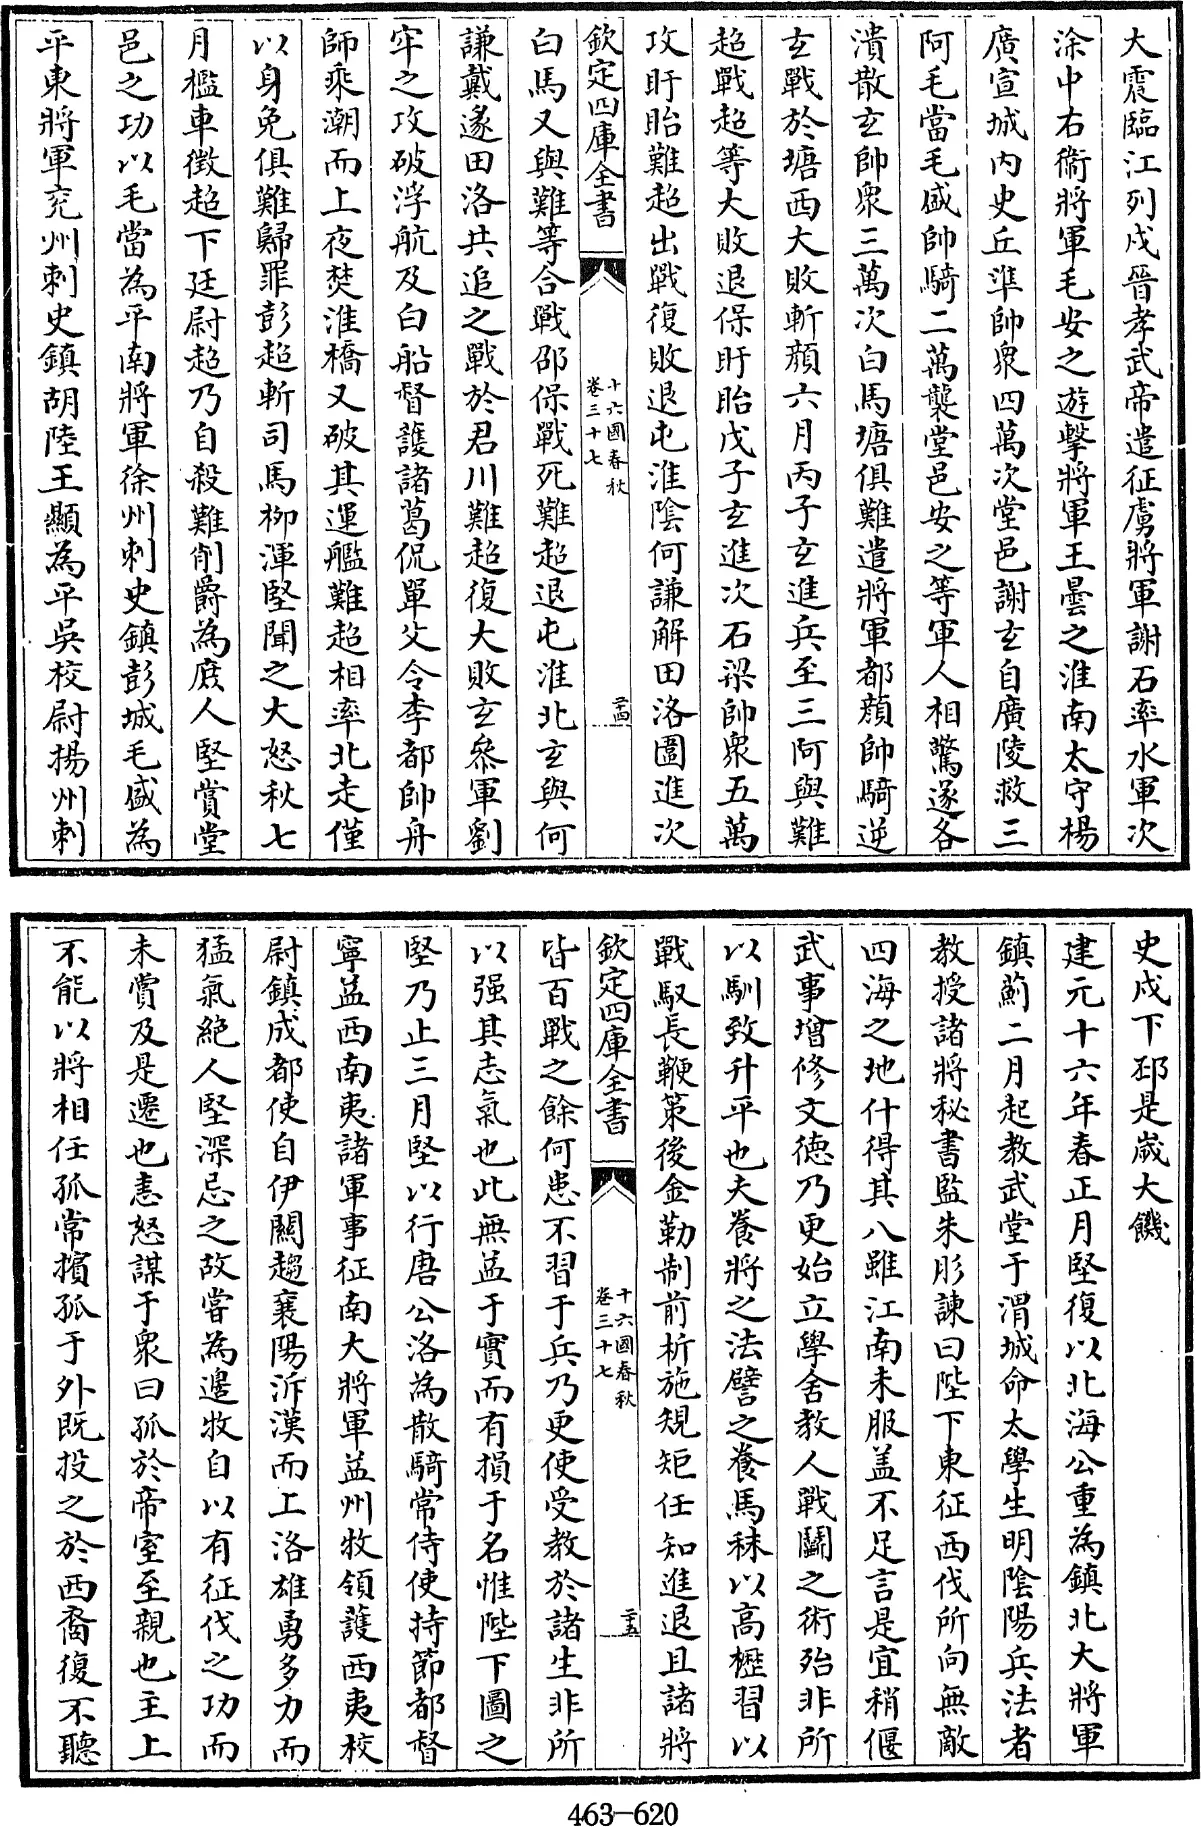 大震臨江列戍晉孝武帝遣征虜將軍謝石率水軍次
涂中右衞將軍毛安之遊擊將軍王曇之淮南太守楊
廣宣城內史丘準帥衆四萬次堂邑謝玄自廣陵救三
阿毛當毛盛帥騎二萬襲堂邑安之等軍人相驚遂各
潰散玄帥衆三萬次白馬塘俱難遣將軍都顏帥騎逆
玄戰於塘西大敗斬顏六月丙子玄進兵至三阿與難
超戰超等大敗退保盱眙戊子玄進次石梁帥衆五萬
攻盱眙難超出戰復敗退屯淮陰何謙解田洛圍進次
欽定四庫全書
十六國春秋
卷三十七
二十四
白馬又與難等合戰邵保戰死難超退屯淮北玄與何
謙戴遂田洛共追之戰於君川難超復大敗玄參軍劉
牢之攻破浮航及白船督護諸葛侃單父令李都帥舟
師乘潮而上夜焚淮橋又破其運艦難超相率北走僅
以身免俱難歸罪彭超斬司馬柳渾堅聞之大怒秋七
月檻車徵超下廷尉超乃自殺難削爵為庶人堅賞堂
邑之功以毛當為平南將軍徐州刺史鎮彭城毛盛為
平東將軍兖州刺史鎮胡陸王顯為平吳校尉揚州刺
史戍下邳是歲大饑
建元十六年春正月堅復以北海公重為鎮北大將軍
鎮薊二月起教武堂于渭城命太學生明陰陽兵法者
教授諸將秘書監朱肜諫曰陛下東征西伐所向無敵
四海之地什得其八雖江南未服蓋不足言是宜稍偃
武事增修文德乃更始立學舍教人戰鬭之術殆非所
以馴致升平也夫養將之法譬之養馬秣以高櫪習以
戰馭長鞭策後金勒制前析施規矩任知進退且諸將
欽定四庫全書
十六國春秋
卷三十七
二十五
皆百戰之餘何患不習于兵乃更使受教於諸生非所
以强其志氣也此無益于實而有損于名惟陛下圖之
堅乃止三月堅以行唐公洛為散騎常侍使持節都督
寧益西南夷諸軍事征南大將軍益州牧領護西夷校
尉鎮成都使自伊闕趨襄陽泝漢而上洛雄勇多力而
猛氣絶人堅深忌之故嘗為邊牧自以有征伐之功而
未賞及是遷也恚怒謀于衆曰孤於帝室至親也主上
不能以將相任孤常擯孤于外既投之於西裔復不聽
463-620